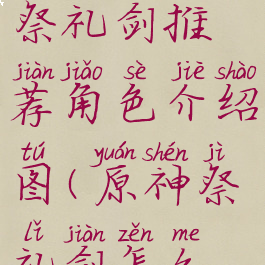 祭礼剑推
jiàn jiǎo sè jiè shào
荐角色介绍
tú yuán shén jì
图(原神祭
lǐ jiàn zěn me
礼剑怎么